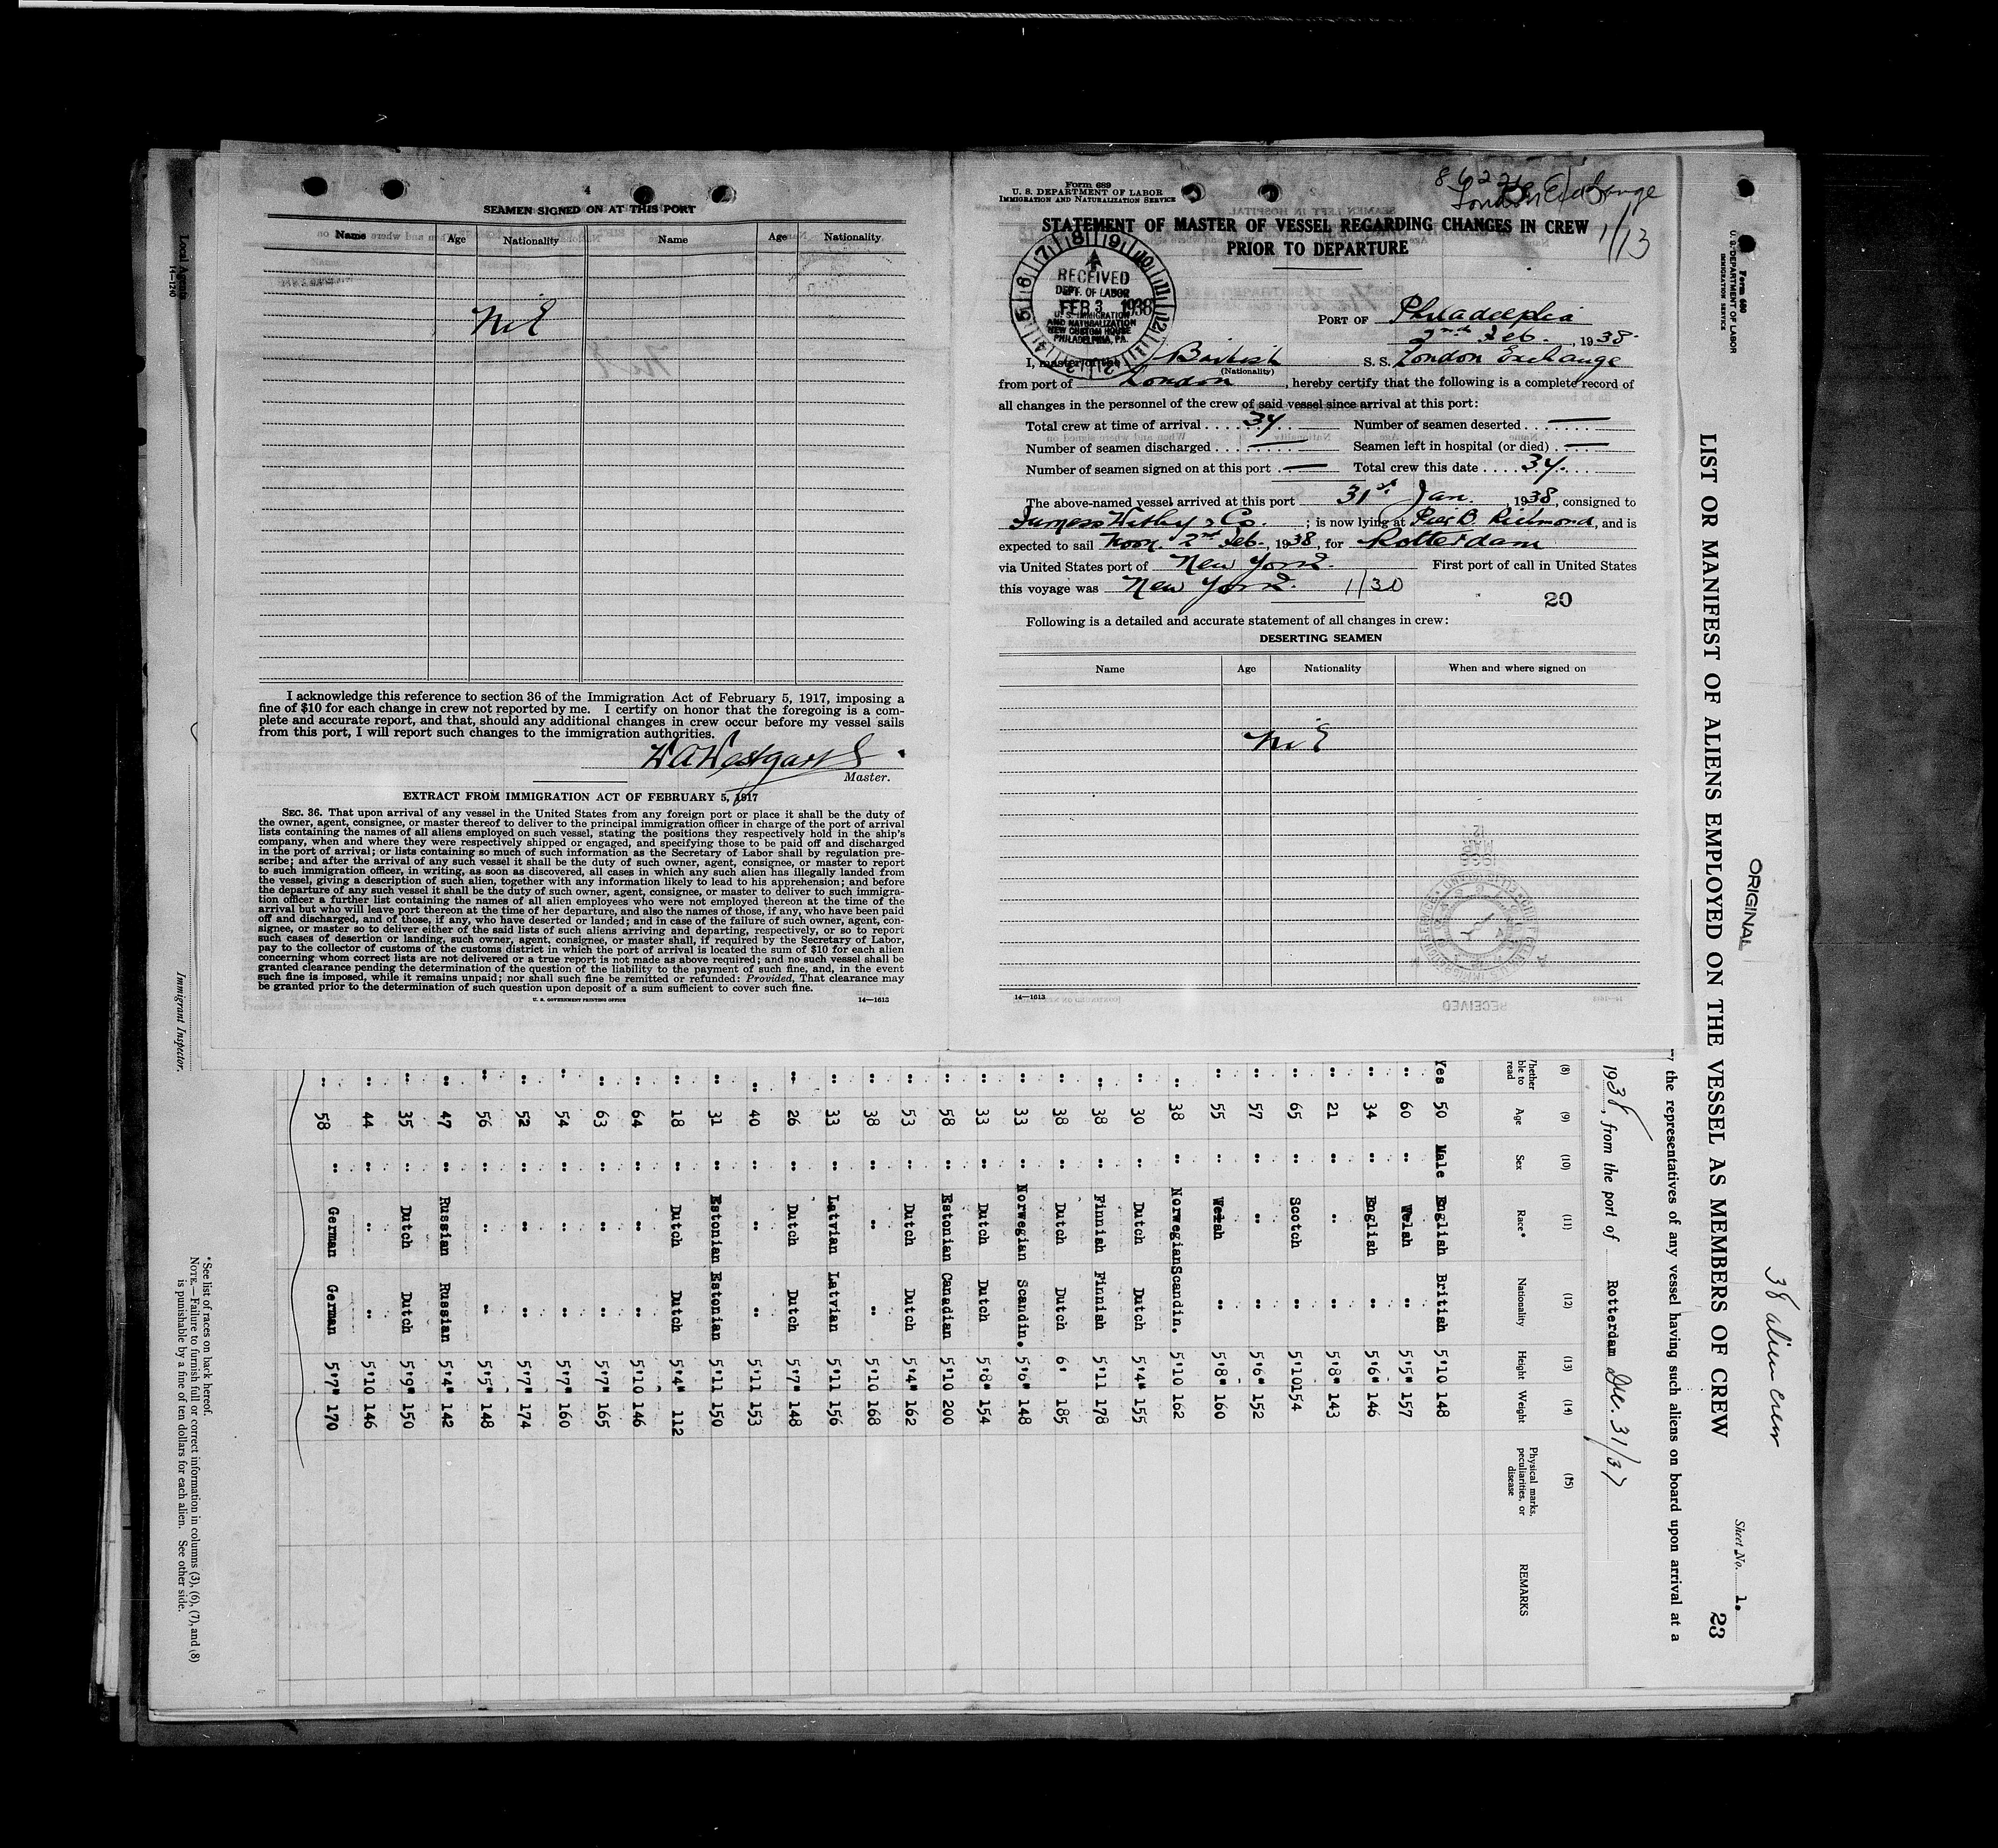 4
SEAMEN SIGNED ON AT THIS PORT
Name Age Nationality Name Age Nationality
Nil
I acknowledge this reference to section 36 of the Immigration Act of February 5, 1917, imposing a
fine of $10 for each change in crew not reported by me. I certify on honor that the foregoing is a com-
plete and accurate report, and that, should any additional changes in crew occur before my vessel sails
from this port, I will report such changes to the immigration authorities.
W A Westgarth
Master.
EXTRACT FROM IMMIGRATION ACT OF FEBRUARY 5, 1917
SEC. 36. That upon arrival of any vessel in the United States from any foreign port or place it shall be the duty of
the owner, agent, consignee, or master thereof to deliver to the principal immigration officer in charge of the port of arrival
lists containing the names of all aliens employed on such vessel, stating the positions they respectively hold in the ship's
company, when and where they were respectively shipped or engaged, and specifying those to be paid off and discharged
in the port of arrival; or lists containing so much of such information as the Secretary of Labor shall by regulation pre-
scribe; and after the arrival of any such vessel it shall be the duty of such owner, agent, consignee, or master to report
to such immigration officer, in writing, as soon as discovered, all cases in which any such alien has illegally landed from
the vessel, giving a description of such alien, together with any information likely to lead to his apprehension; and before
the departure of any such vessel it shall be the duty of such owner, agent, consignee, or master to deliver to such immigra-
tion officer a further list containing the names of all alien employees who were not employed thereon at the time of the
arrival but who will leave port thereon at the time of her departure, and also the names of those, if any, who have been paid
off and discharged, and of those, if any, who have deserted or landed; and in case of the failure of such owner, agent, con-
signee, or master so to deliver either of the said lists of such aliens arriving and departing, respectively, or so to report
such cases of desertion or landing, such owner, agent, consignee, or master shall, if required by the Secretary of Labor,
pay to the collector of customs of the customs district in which the port of arrival is located the sum of $10 for each alien
concerning whom correct lists are not delivered or a true report is not made as above required; and no such vessel shall be
granted clearance pending the determination of the question of the liability to the payment of such fine, and, in the event
such fine is imposed, while it remains unpaid; nor shall such fine be remitted or refunded: Provided, That clearance may
be granted prior to the determination of such question upon deposit of a sum sufficient to cover such fine.
U. S. GOVERNMENT PRINTING OFFICE 14—1613
Form 689
U. S. DEPARTMENT OF LABOR
IMMIGRATION AND NATURALIZATION SERVICE
London Exchange
1/13
STATEMENT OF MASTER OF VESSEL REGARDING CHANGES IN CREW
PRIOR TO DEPARTURE
RECEIVED
DEPT. OF LABOR
FEB 3 1938
U. S. IMMIGRATION
AND NATURALIZATION
NEW CUSTOM HOUSE
PHILADELPHIA, PA.
PORT OF Philadelphia
2nd Feb. , 1938.
I, master of the British S. S. London Exchange
(Nationality)
from port of London , hereby certify that the following is a complete record of
all changes in the personnel of the crew of said vessel since arrival at this port:
Total crew at time of arrival 34 Number of seamen deserted —
Number of seamen discharged — Seamen left in hospital (or died) —
Number of seamen signed on at this port — Total crew this date 34.
The above-named vessel arrived at this port 31st Jan. , 1938, consigned to
Furness Withy & Co. ; is now lying at Pier B. Richmond, and is
expected to sail Noon. 2nd Feb., 1938, for Rotterdam
via United States port of New York. First port of call in United States
this voyage was New York. 1/30
20
Following is a detailed and accurate statement of all changes in crew:
DESERTING SEAMEN
Name Age Nationality When and where signed on
Nil
14—1613
Form 680
U. S. DEPARTMENT OF LABOR
IMMIGRATION SERVICE
ORIGINAL
38 alien crew
Sheet No. 1.
23
LIST OR MANIFEST OF ALIENS EMPLOYED ON THE VESSEL AS MEMBERS OF CREW
the representatives of any vessel having such aliens on board upon arrival at a
1938, from the port of Rotterdam Dec. 31/37
(8) (9) (10) (11) (12) (13) (14) (15)
Whether able to read Age Sex Race* Nationality Height Weight Physical marks, peculiarities, or disease REMARKS
Yes 50 Male English British 5'10 148
" 60 " Welsh " 5'5" 157
" 34 " English " 5'6" 146
" 21 " " " 5'8" 143
" 65 " Scotch " 5'10 154
" 57 " " " 5'6" 152
" 55 " Welsh " 5'8" 160
" 38 " Norwegian Scandin. 5'10 162
" 30 " Dutch Dutch 5'4" 155
" 38 " Finnish Finnish 5'11 178
" 38 " Dutch Dutch 6' 185
" 33 " Norwegian Scandin. 5'6" 148
" 33 " Dutch Dutch 5'8" 154
" 58 " Estonian Canadian 5'10 200
" 53 " Dutch Dutch 5'4" 162
" 38 " " " 5'10 168
" 33 " Latvian Latvian 5'11 156
" 26 " Dutch Dutch 5'7" 148
" 40 " " " 5'11 153
" 31 " Estonian Estonian 5'11 150
" 18 " Dutch Dutch 5'4" 112
" 64 " " " 5'10 146
" 63 " " " 5'7" 165
" 54 " " " 5'7" 160
" 52 " " " 5'7" 174
" 56 " " " 5'5" 148
" 47 " Russian Russian 5'4" 142
" 35 " Dutch Dutch 5'9" 150
" 44 " " " 5'10 146
" 58 " German German 5'7" 170
*See list of races on back hereof.
NOTE.—Failure to furnish full or correct information in columns (3), (6), (7), and (8)
is punishable by a fine of ten dollars for each alien. See other side.
Local Agents
14—1240
Immigrant Inspector.